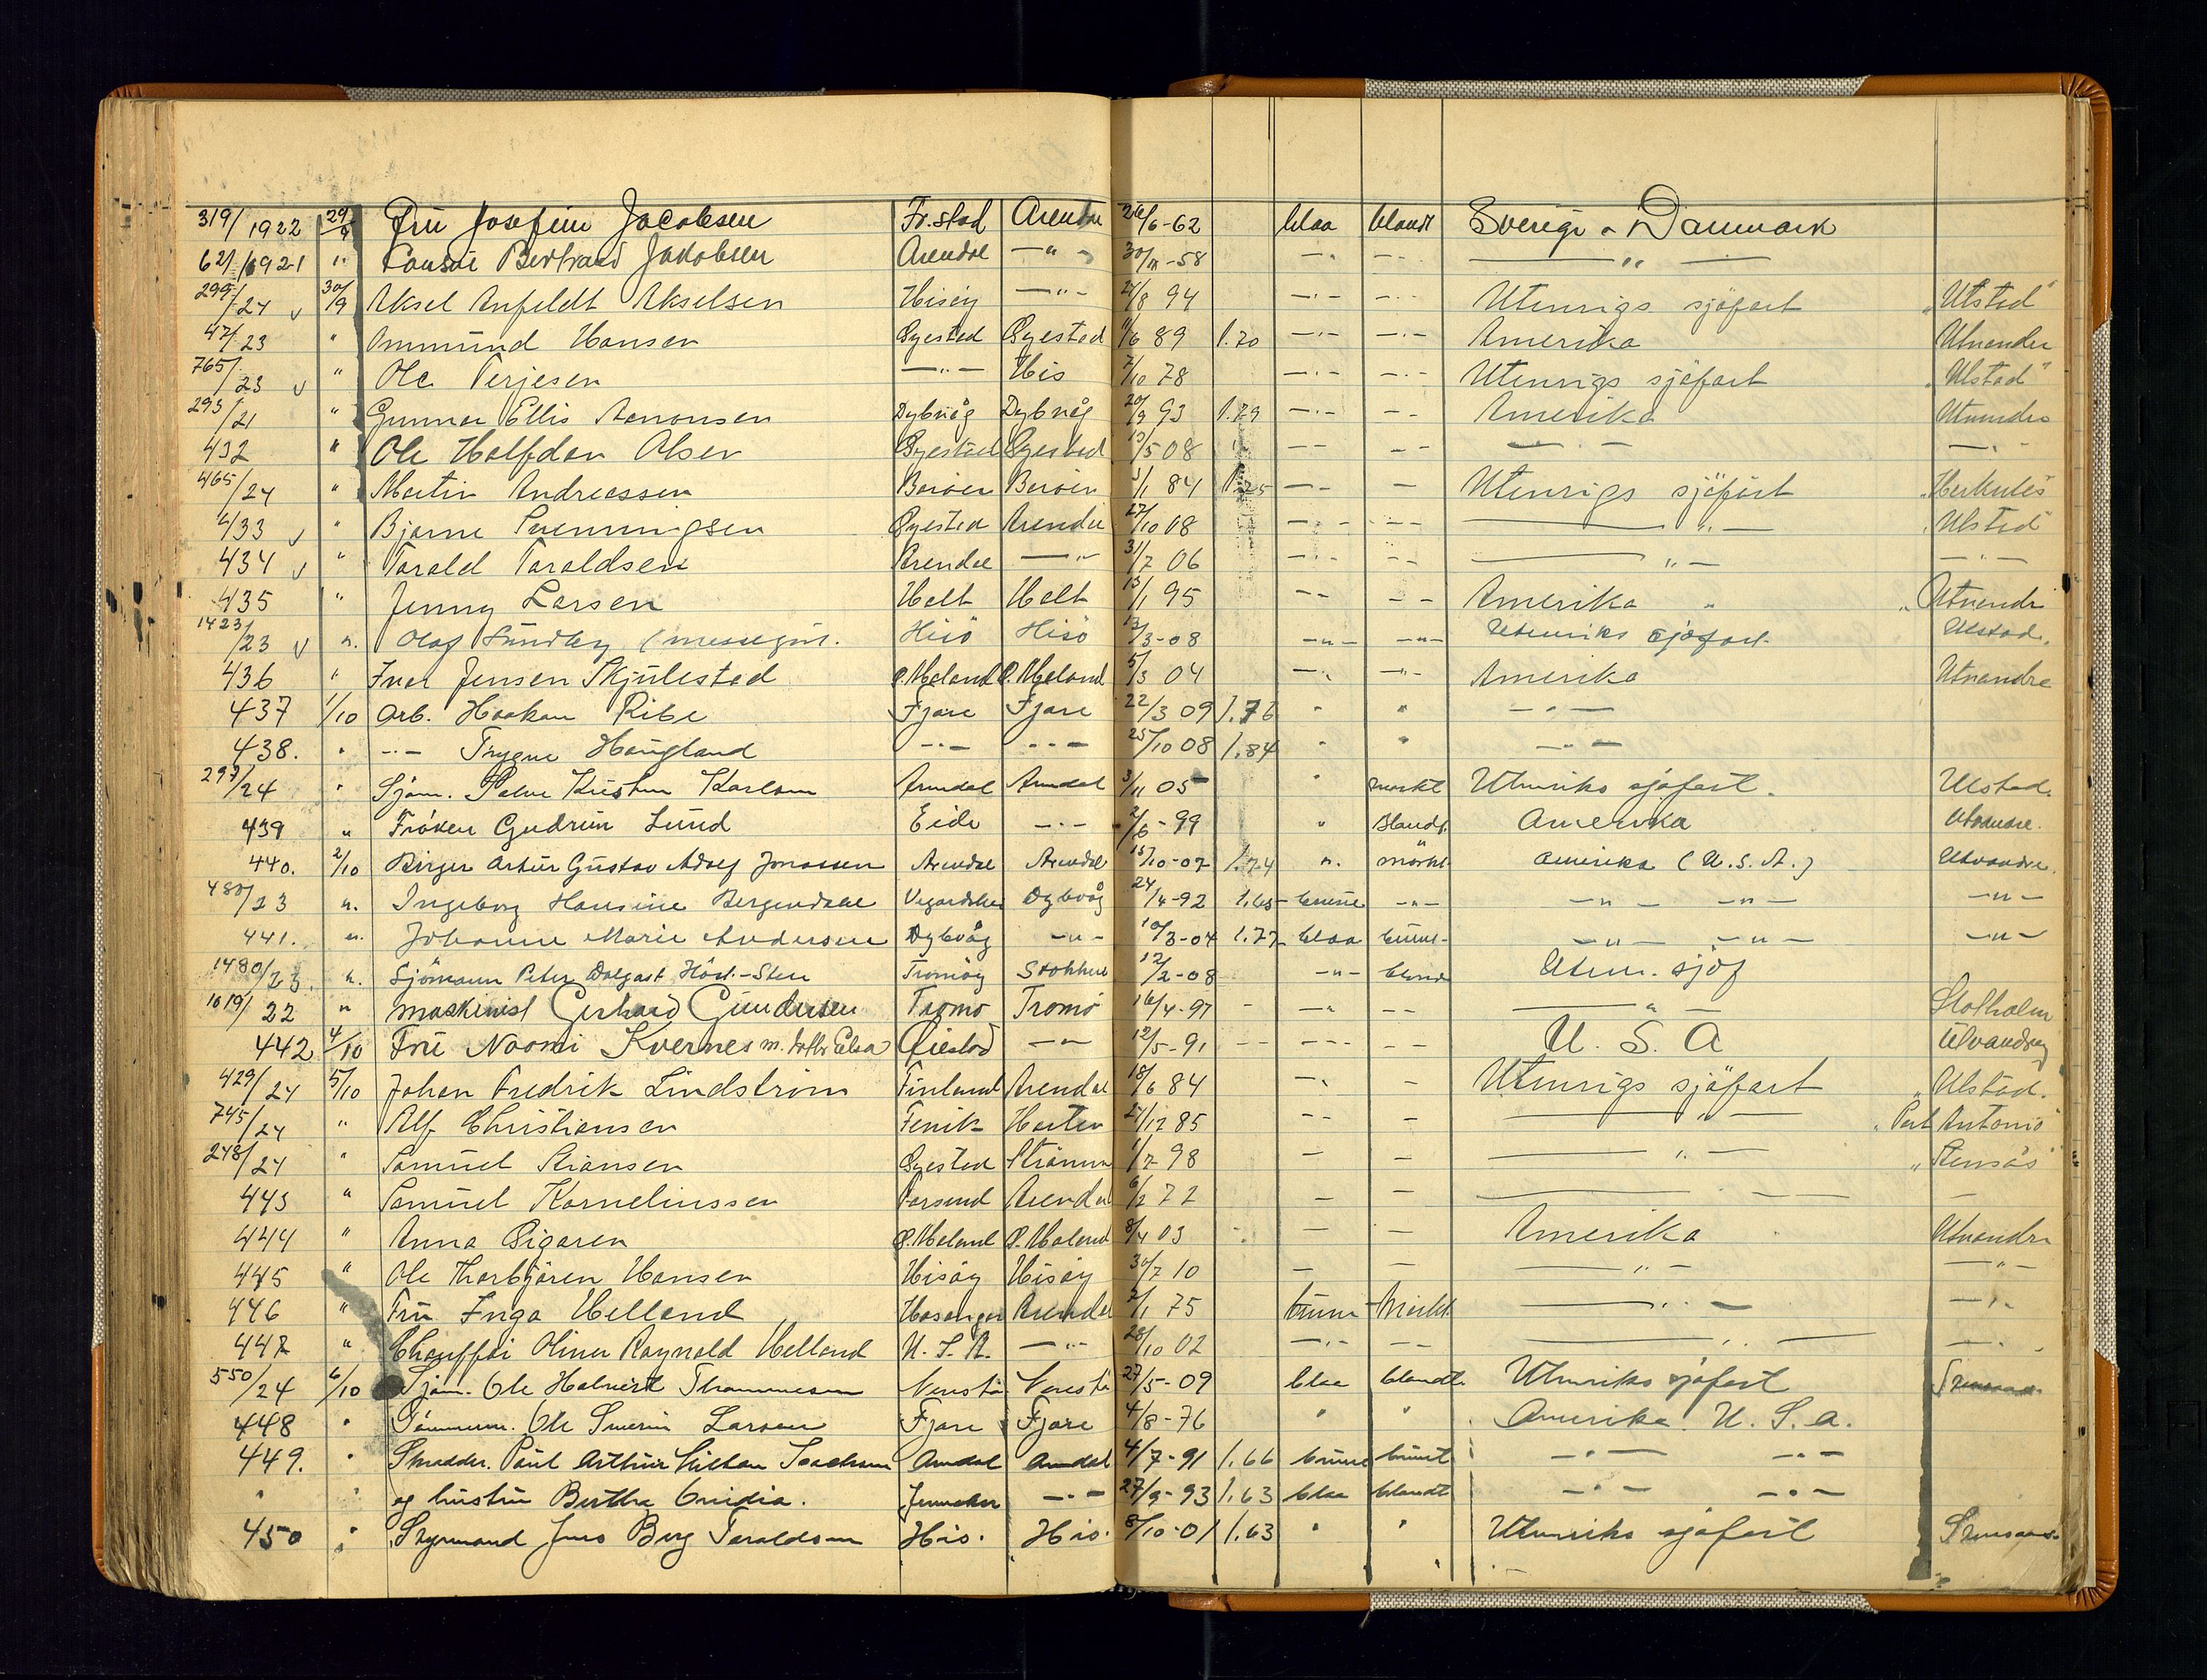 319/1922 29/9 Fru Josefine Jacobsen Fr.stad Arendal 26/6-62 blaa blondt Sverige & Danmark
621/1921 " Bertrand Jakobsen Arendal —"— 30/11-58 —"— —"— —"—
299/24 v 30/9 Aksel Anfeldt Akselsen Hisöy —"— 27/8 94 —"— —"— Utenrigs sjöfart "Ulstad"
47/23 " Ommund Hansen Öyestad Öyestad 11/6 89 1.70 —"— —"— Amerika Utvandre
765/23 v " Ole Terjesen —"— His 7/10 78 —"— —"— Utenrigs sjöfart "Ulstad"
293/21 " Gunnar Ellis Aanonsen Dybvåg Dybvåg 20/9 93 1.79 —"— —"— Amerika Utvandre
432 " Ole Halfdan Olsen Öyestad Öyestad 13/5 08 —"— —"— —"— —"—
465/24 " Martin Andreassen Baröen Baröen 3/1 84 1.75 —"— — Utenrigs sjöfart "Herkules"
433 v " Bjarne Svenningsen Öyestad Arendal 27/10 08 —"— —"— —"— "Ulstad"
434 v " Tarald Taraldsen Arendal —"— 31/7 06 —"— —"— —"— —"—
435 " Jenny Larsen Holt Holt 13/1 95 —"— —"— Amerika " Utvandre
1423/23 v " Olaf Sundby (messegut. Hisö Hisö 13/3-08 —"— —"— Utenriks sjøfart. Ulstad.
436 " Ivar Jensen Skjulestad Ö. Moland Ö. Moland 5/3 04 —"— —"— Amerika Utvandre
437 1/10 Arb. Haakon Ribe Fjære Fjære 22/3 09 1.76 " " —"—
438. " —"— Trygve Haugland —"— —"— 25/10 08 1.84 " " —"—
297/24 " Sjøm. Salve Kristen Karlsen Arendal Arendal 3/11 05 " mørkt Utenriks sjøfart. Ulstad.
439 " Frøken Gudrun Lund Eide —"— 2/6-99 " Blondt. Amerika Utvandre.
440. 2/10 Birger Artur Gustav Adolf Jonassen Arendal Arendal 15/10-07 1.74 ". mørkt Amerika (U.S.A.) Utvandre.
480/23 ". Ingeborg Hansine Bergendahl Vegardshei Dybvåg 24/4-92 1.65 brune —"— —"— —"— —"—
441. ". Johanne Marie Andersen Dybvåg —"— 10/3-04 1.77 blaa brunt —"— —"— —"—
1480/23. ". Sjömann Peter Dalgast Tromöy 12/2-08 —"— blond Utenr. sjøf
1619/22 " Maskinist Gerhard Gundersen Tromö Tromö 16/4-97 —"— —"— —"— Stokholm
442 4/10 Fru Naomi Kvernes m. Elsa Öiestad —"— 12/5-91 —"— —"— U. S. A Utvandrer
429/24 5/10 Johan Fredrik Lindström Finland Arendal 18/6 84 —"— — Utenrigs sjöfart "Ulstad.
745/24 " Alf Christiansen Horten 27/12 85 —"— — —"— "Port Antonio"
248/24 " Samuel Öyestad 1/7 98 — — —"— "Stensås"
443 " Samuel Korneliussen Farsund Arendal 6/2 72 — — —"— —
444 " Anna Ö. Moland Ö. Moland 8/4 03 — — Amerika Utvandre
445 " Ole Thorbjören Hansen Hisöy Hisöy 30/7 10 — — —"— —"—
446 " Fru Inga Helland Arendal 2/1 75 brune Mørkt —"— —"—
447 " Chauffør Oliver Raynold Helland U. S. A. —"— 28/10 02 —"— — —"— —"—
550/24 6/10 Sjøm. Ole 27/5-09 blaa blondt. Utenriks sjøfart
448 " Tömmerm. Ole Severin Larsen Fjære Fjære 4/8-76 " " Amerika U. S. A.
449. " Skrædder. Paul Arthur Arendal Arendal 4/7-91 1.66 brune brunt —"— —"—
" " og hustru Bertha —"— 27/9-93 1.63 blaa blondt —"— —"—
450 " Styrmand Jens Berg Taraldsen His. His. 8/10-01 1.63 " " Utenriks sjøfart